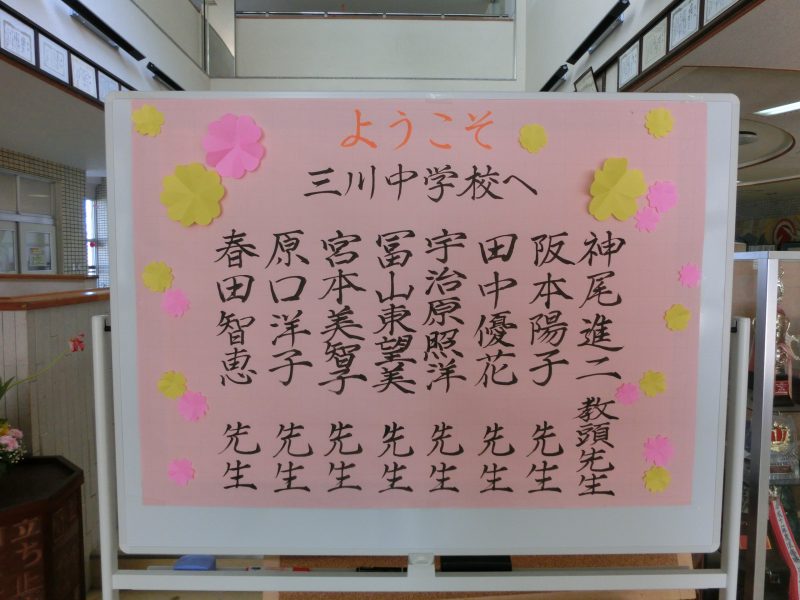 ようこそ
三川中学校へ
神尾進二教頭先生
阪本陽子先生
田中優花先生
宇治原照洋先生
冨山東望美先生
宮本美智子先生
原口洋子先生
春田智恵先生
立ち止